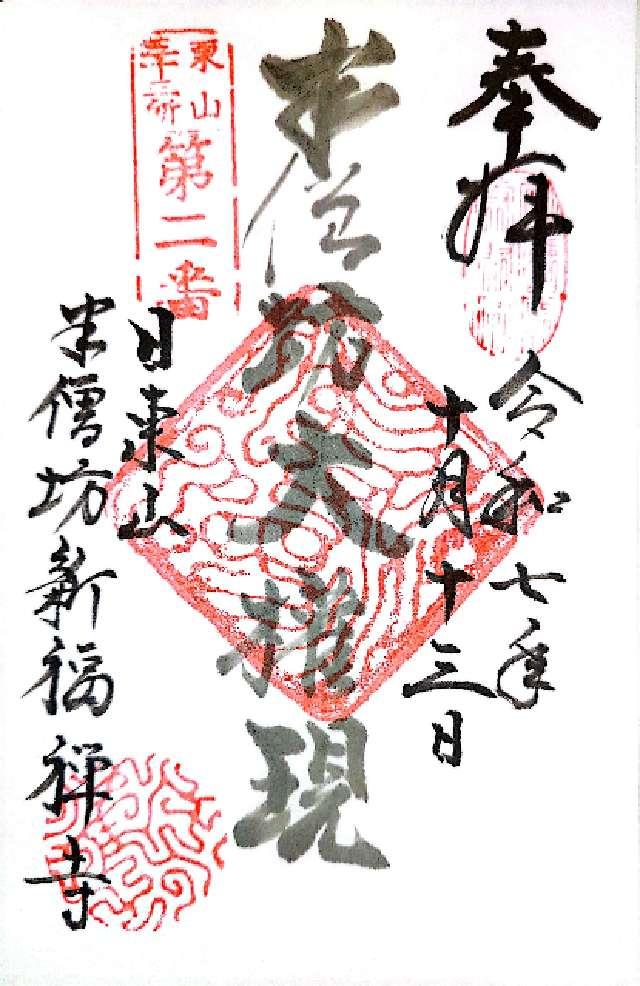 奉拝
令和七年
十月十三日
半僧坊大権現
東山
第二番
日東山
半僧坊新福禅寺